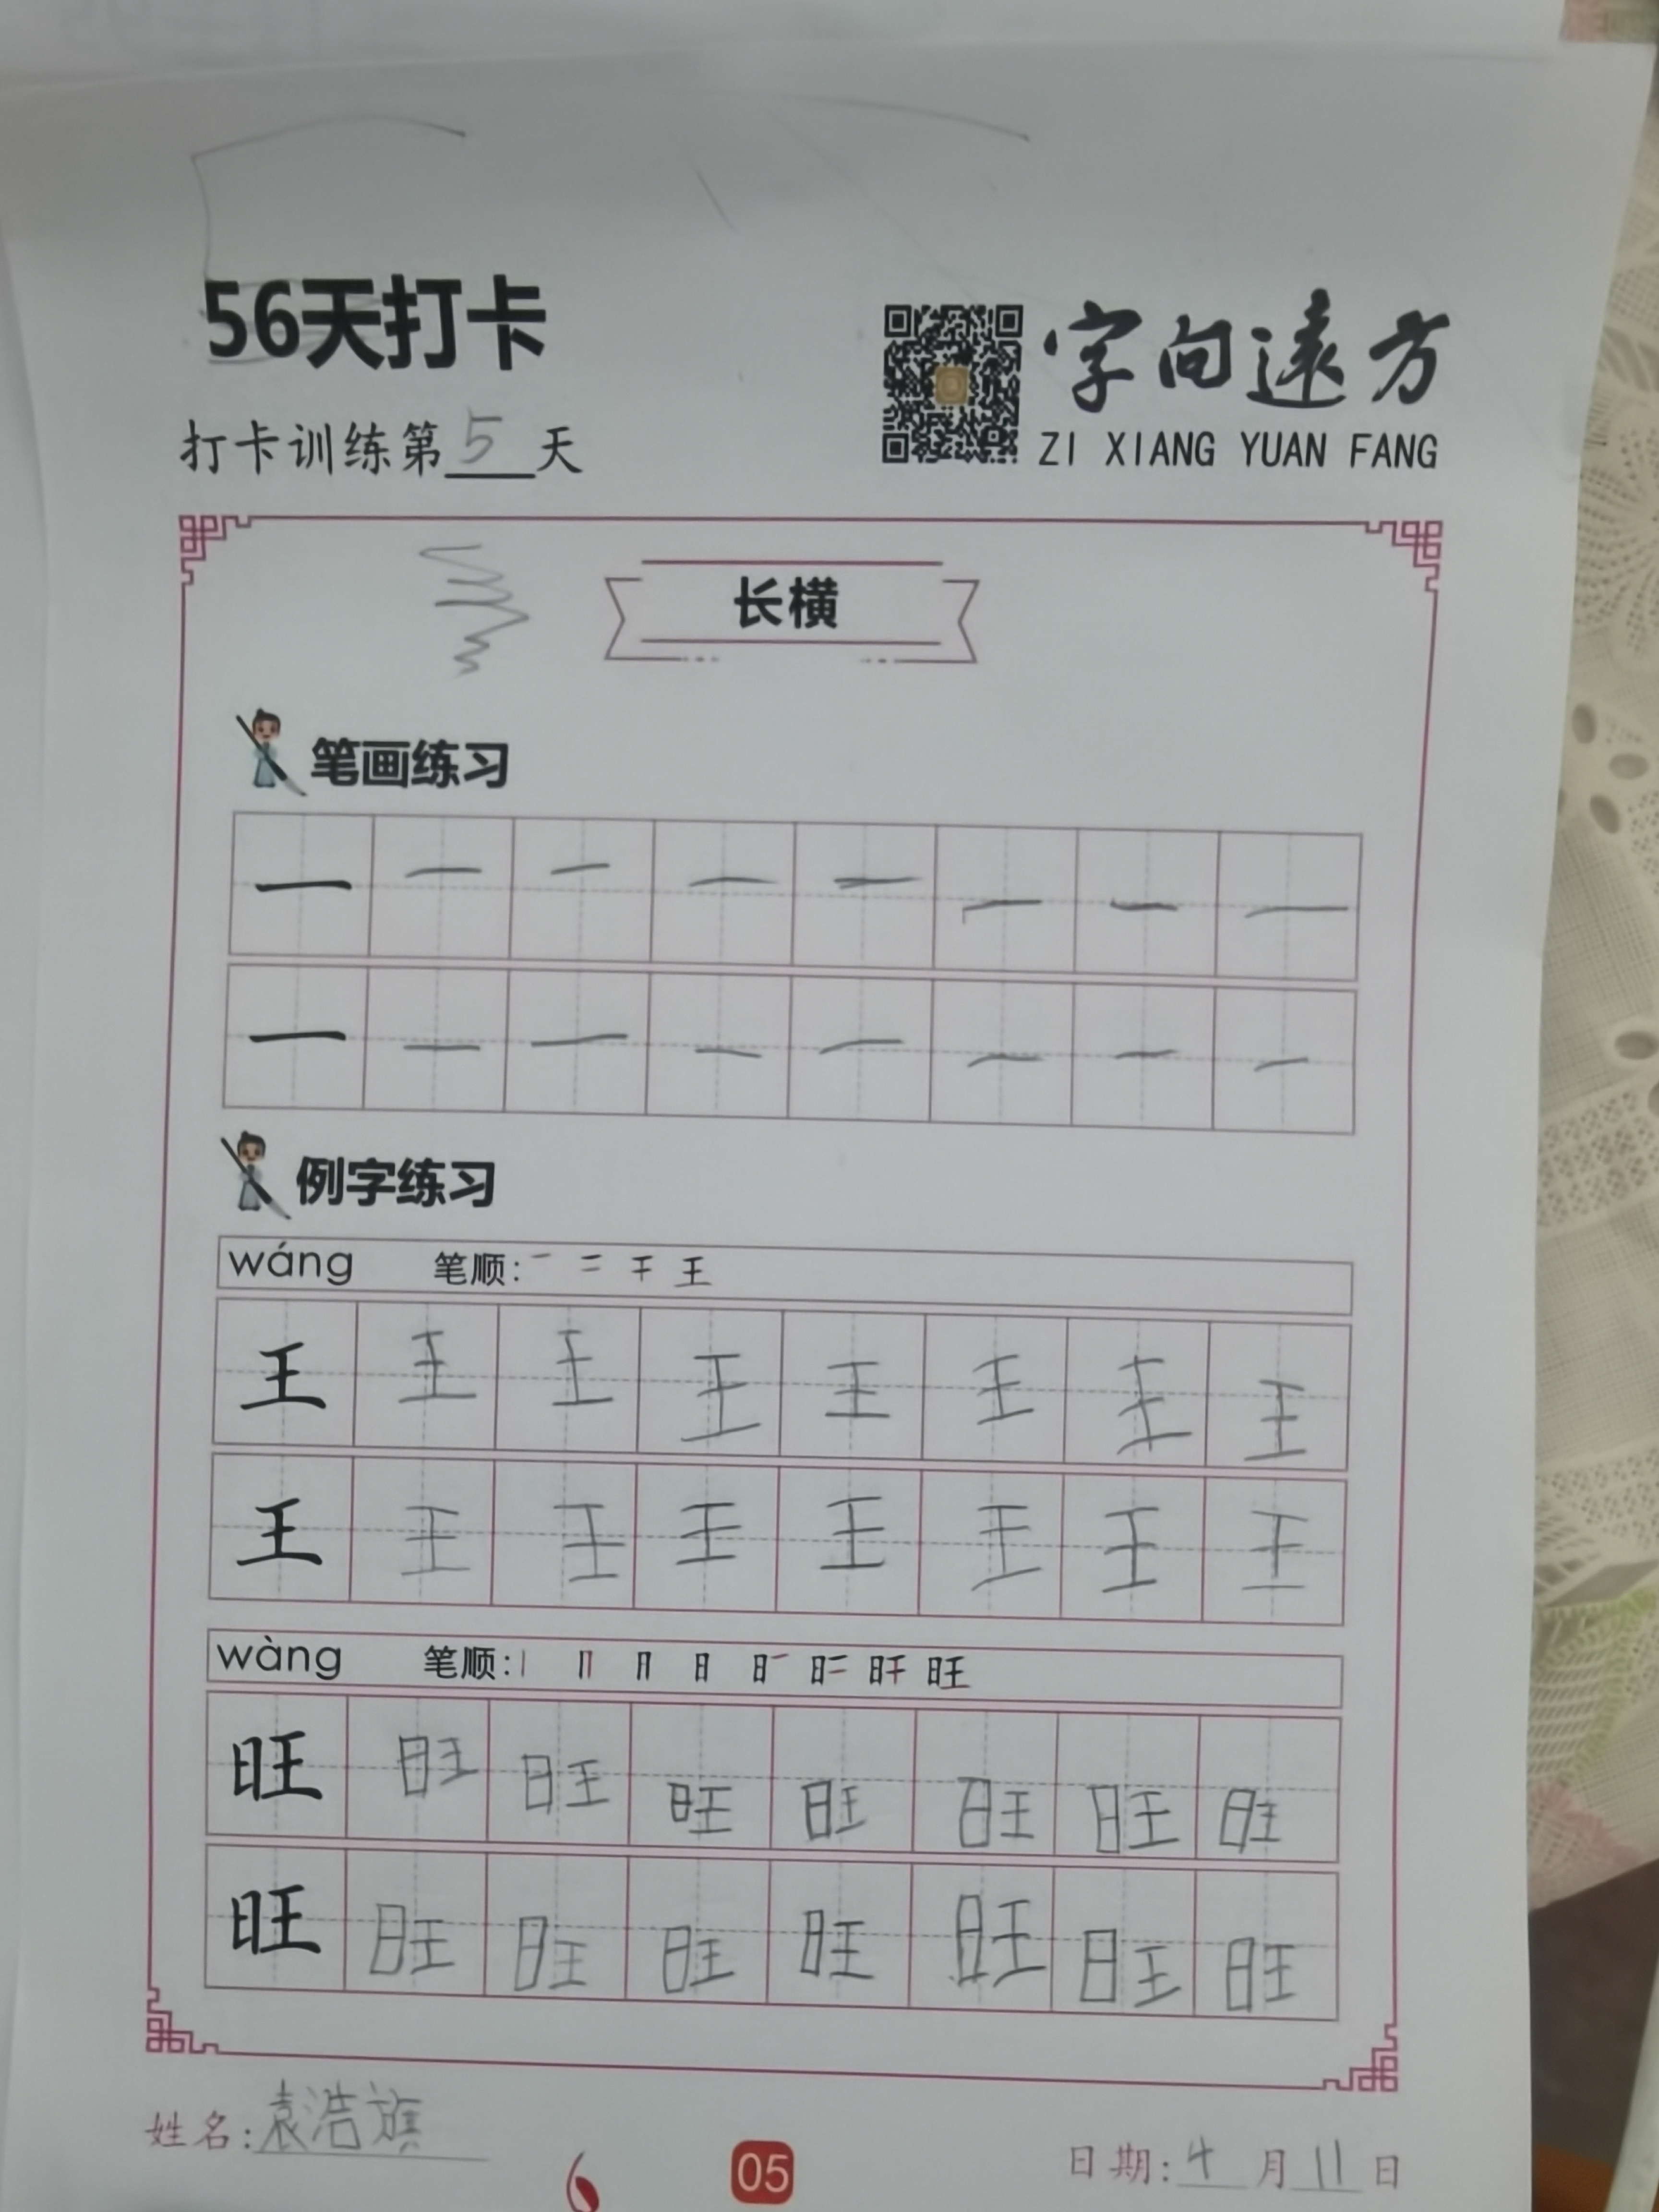 56天打卡
字向遠方
打卡训练第5天
ZI XIANG YUAN FANG
长横
笔画练习
一 一 一 一 一 一 一 一
一 一 一 一 一 一 一 一
例字练习
wáng 笔顺: 一 二 干 王
王 王 王 王 王 王 王 王
王 王 王 王 王 王 王 王
wàng 笔顺: 丨 日 旺
旺 旺 旺 旺 旺 旺 旺 旺
旺 旺 旺 旺 旺 旺 旺 旺
姓名:袁浩旗
05
日期:4月11日